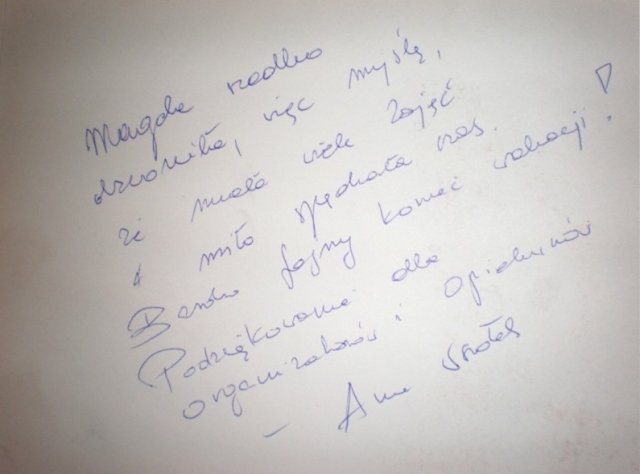 Magda rzadko
dzwoniła, więc myślę,
że miała wiele zajęć
i miło spędzała czas.
Bardzo fajny koniec wakacji!
Podziękowania dla
organizatorów i opiekunów
- Anna